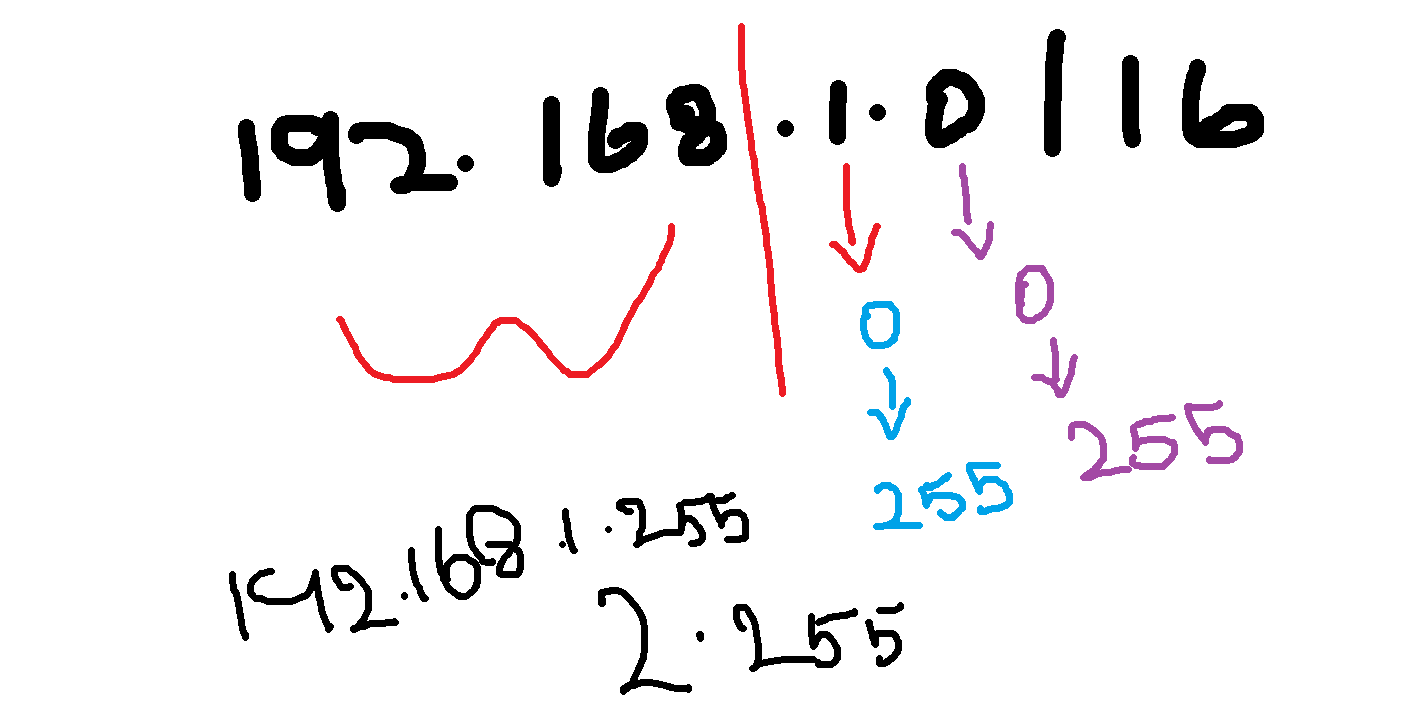 192.168.1.0/16
0
0
255
255
192.168.1.255
2.255